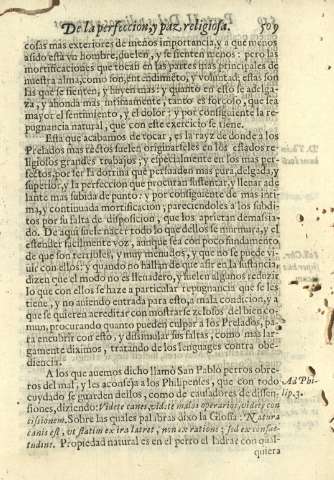 De la perfeccion, y paz religiosa. 509
cosas mas exteriores de menos importancia, y a que menos
asido està vn hombre, duelen, y se sienten menos: pero las
mortificaciones que tocan en las partes mas principales de
nuestra alma, como son, entendimiẽto, y voluntad, estas son
las que se sienten, y huyen mas: y quanto en esto se adelga-
za, y ahonda mas intimamente, tanto es forçoso, que sea
mayor el sentimiento, y el dolor: y por consiguiente la re-
pugnancia natural, que con este exercicio se tiene.
Esta que acabamos de tocar, es la rayz de donde a los
Prelados mas rectos suelen originarseles en los estados re-
ligiosos grandes trabajos; y especialmente en los mas per-
fectos, por ser la dotrina que persuaden mas pura, delgada, y
superior, y la perfeccion que procuran sustentar, y lleuar ade
lante mas subida de punto: y por consiguiente de mas inti-
ma, y continuada mortificacion; pareciendoles a los subdi-
tos por su falta de disposicion, que los aprietan demasia-
do. De aqui suele nacer todo lo que dellos se murmura, y el
estender facilmente voz, aunque sea con poco fundamento,
de que son terribles, y muy menudos, y que no se puede vi-
uir con ellos: y quando no hallan de que asir en la sustancia,
dizen que el modo no es llenadero, y suelen algunos reduzir
lo que con ellos se haze a particular repugnancia que se les
tiene, y no aniendo entrada para esto, a mala condicion, y a
que se quieren acreditar con mostrarse zelosos del bien co-
mun, procurando quanto pueden culpar a los Prelados, pa-
ra encubrir con esto, y dissimular sus faltas, como mas lar-
gamente diximos, tratando de los lenguages contra obe-
diencia.
A los que auemos dicho llamò San Pablo perros obre-
ros del mal, y les aconseja a los Philipenses, que con todo
cuydado se guarden dellos, como de causadores de dissen-
siones, diziendo: Videte canes, videte malos operarios, videte con
cissionem. Sobre las quales palabras dixo la Glossa: Natura
canis est, vt statim ex ira latret, non ex ratione; sed ex consue-
tudine. Propiedad natural es en el perro el ladrar con qual-
quiera
Ad Phi-
lip. 3.